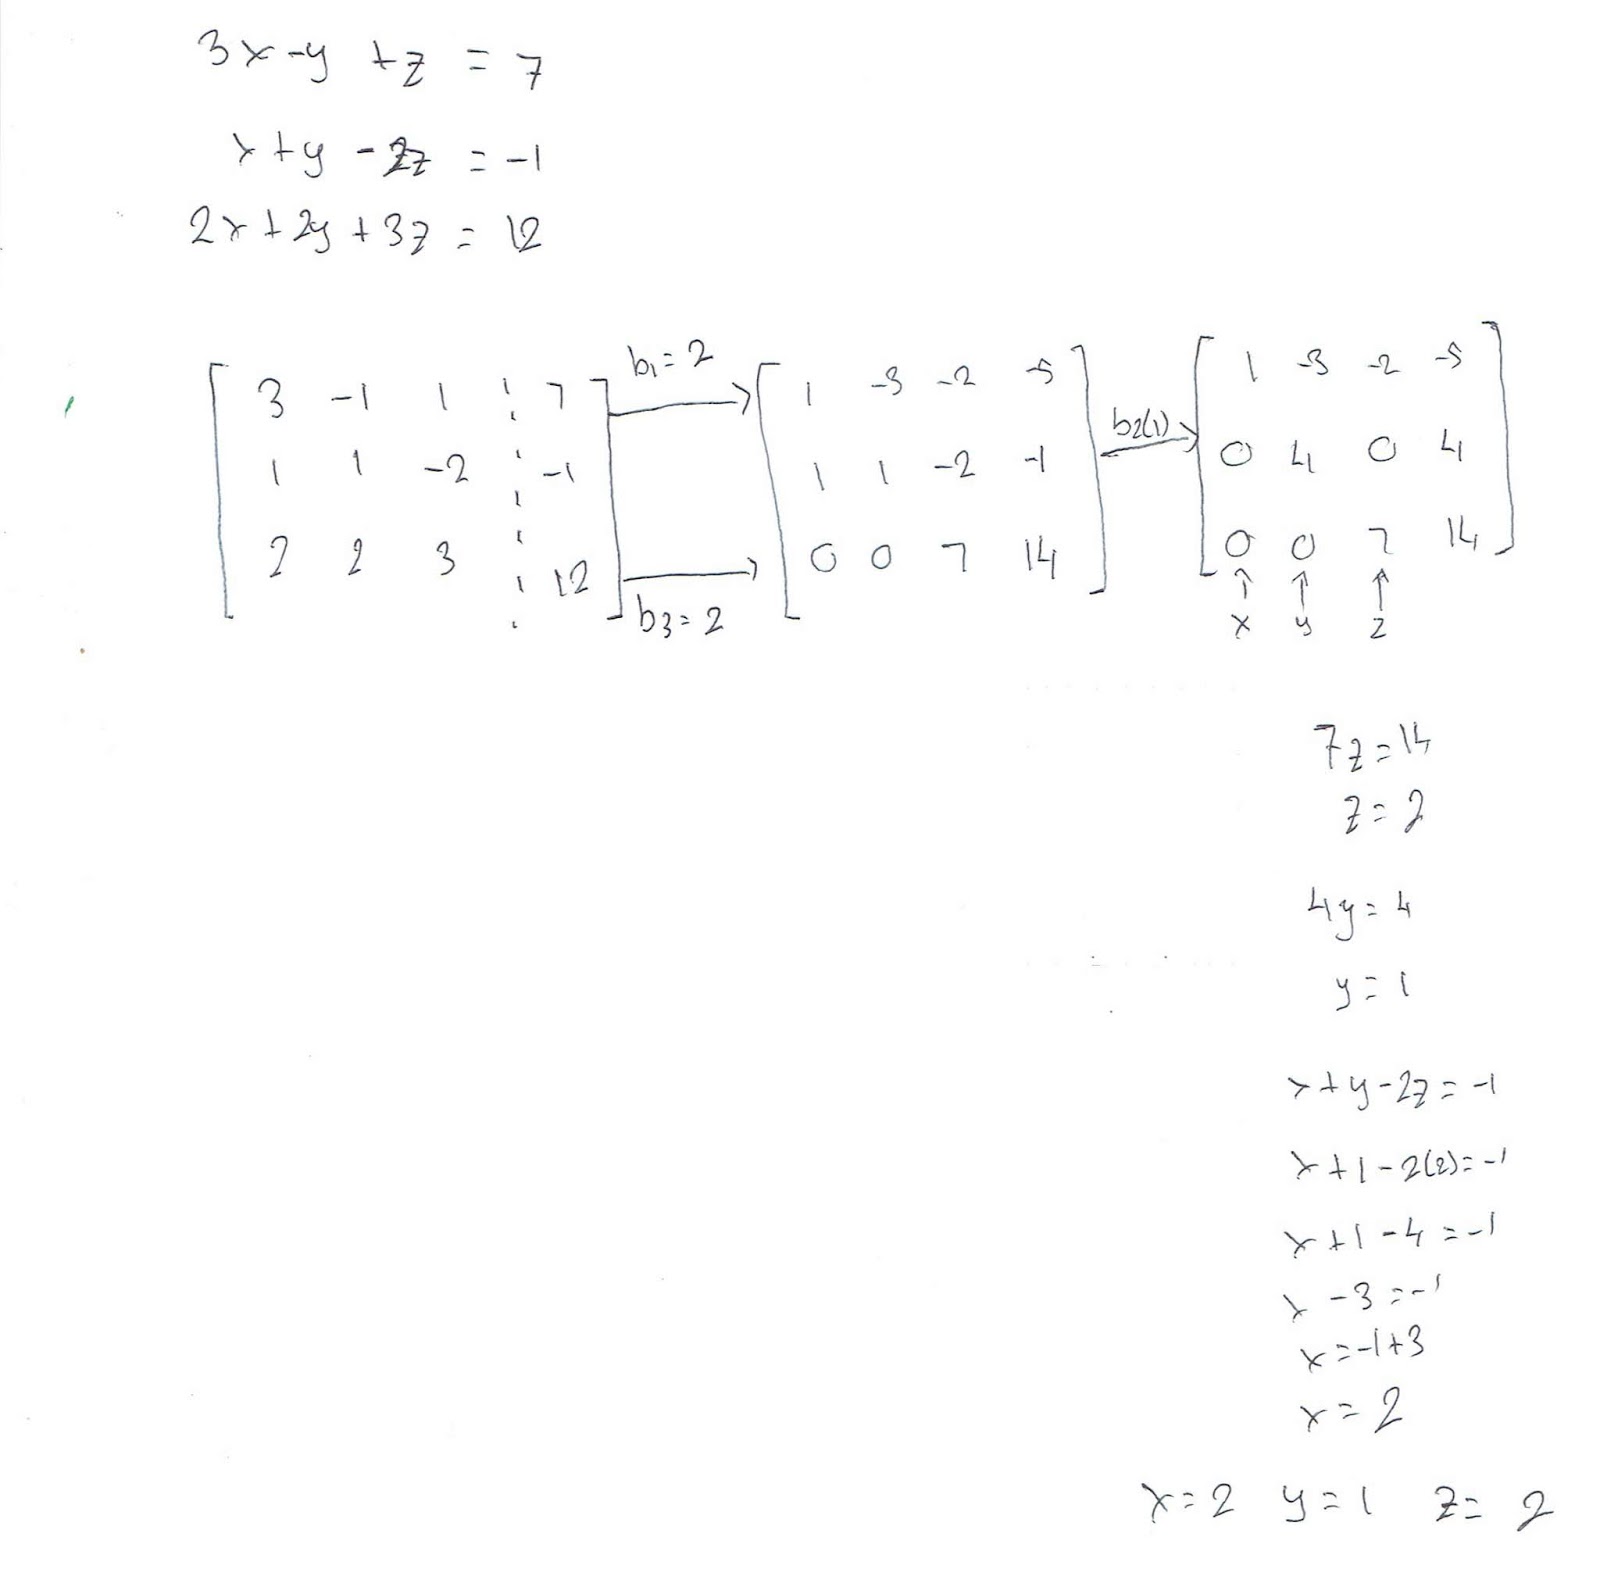 3x-y+z=7
x+y-2z=-1
2x+2y+3z=12
b1=2
3 -1 1 7
1 1 -2 -1
2 2 3 12
b3=2
1 -3 -2 -5
1 1 -2 -1
0 0 7 14
b2(1)
1 -3 -2 -5
0 4 0 4
0 0 7 14
x y z
7z=14
z=2
4y=4
y=1
x+y-2z=-1
x+1-2(2)=-1
x+1-4=-1
x-3=-1
x=-1+3
x=2
x=2 y=1 z=2